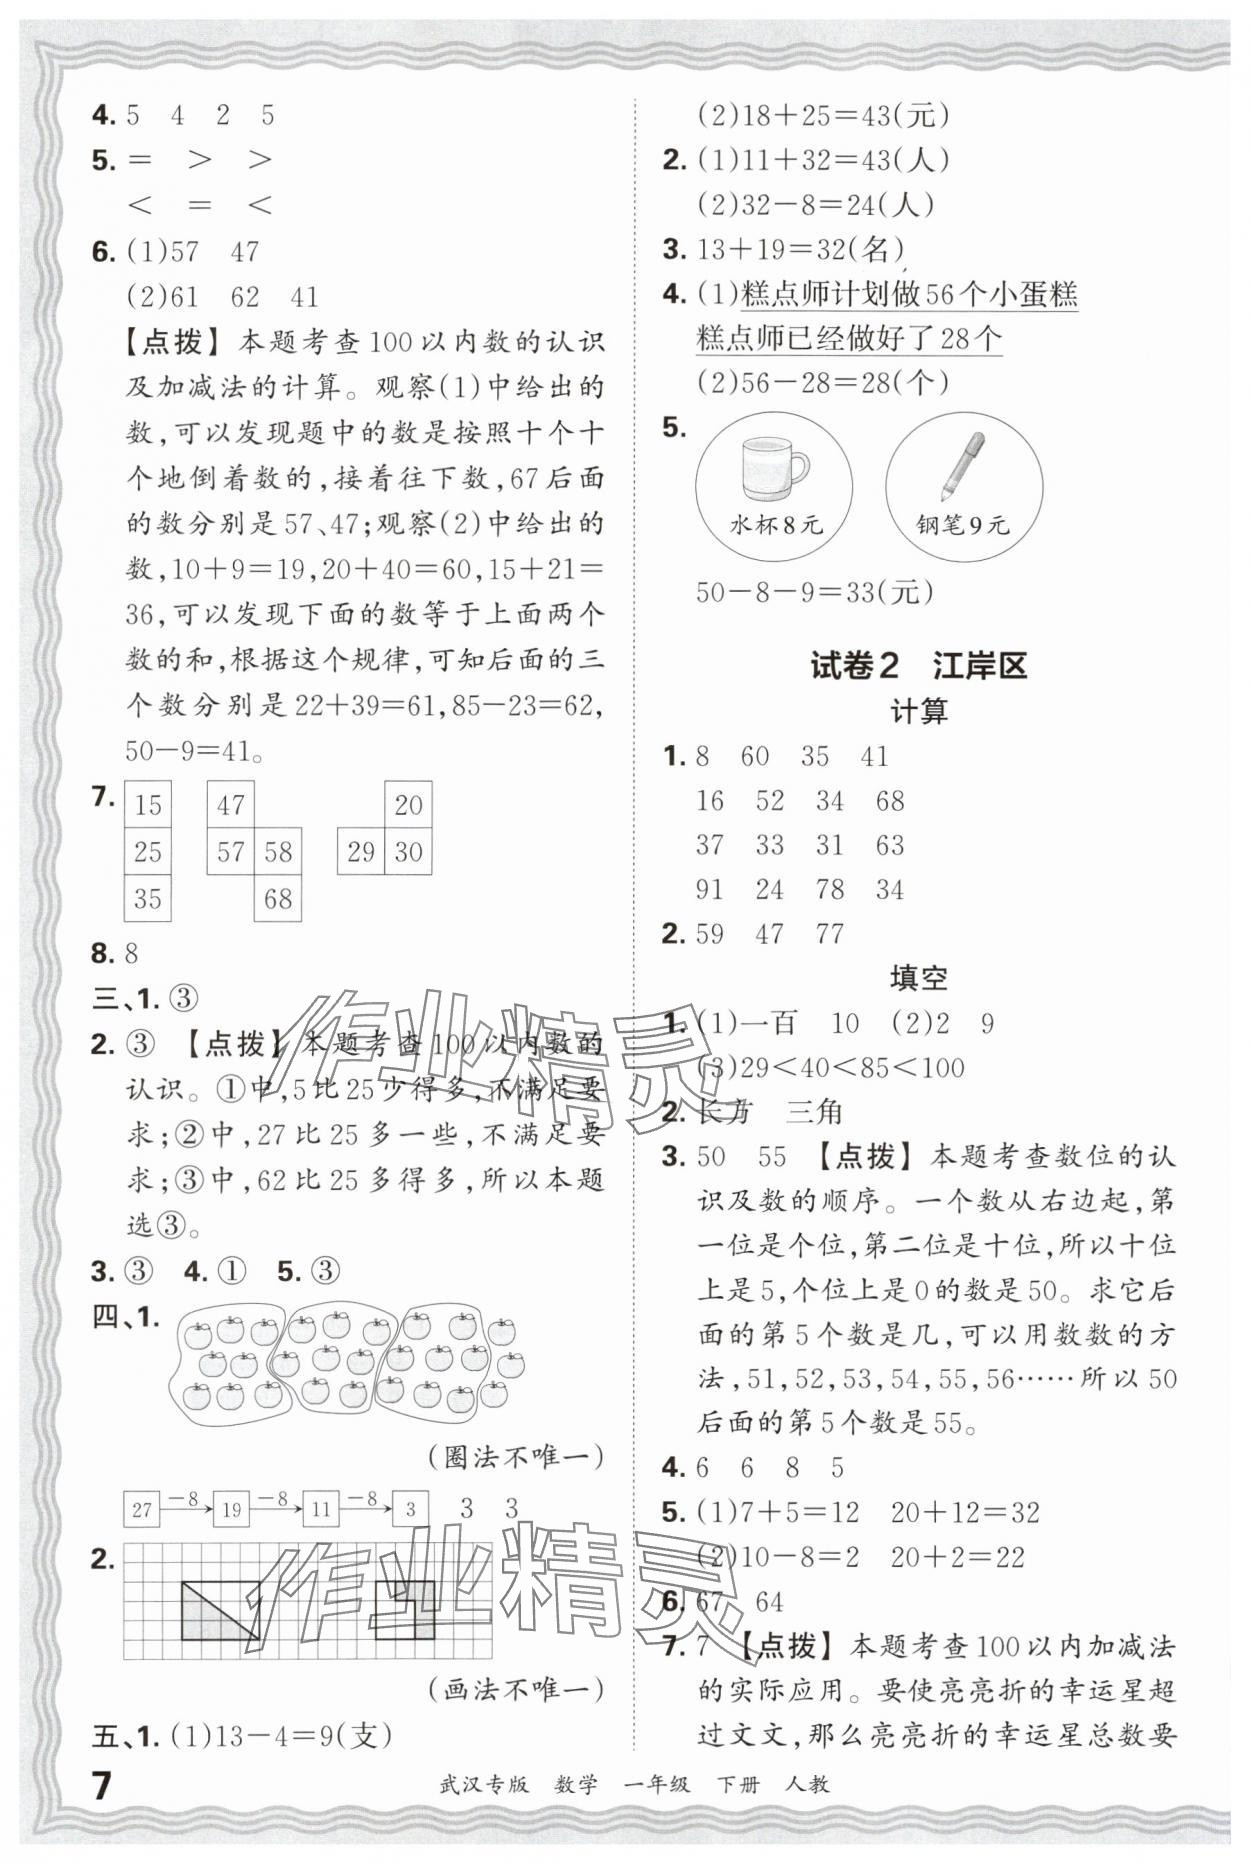 4. 5 4 2 5
5. = > >
< = <
6. (1)57 47
(2)61 62 41
【点拨】本题考查100以内数的认识
及加减法的计算。观察(1)中给出的
数,可以发现题中的数是按照十个十
个地倒着数的,接着往下数,67后面
的数分别是57、47;观察(2)中给出的
数,10+9=19,20+40=60,15+21=
36,可以发现下面的数等于上面两个
数的和,根据这个规律,可知后面的三
个数分别是22+39=61,85-23=62,
50-9=41。
7. 15 47 20
25 57 58 29 30
35 68
8. 8
三、1. ③
2. ③ 【点拨】本题考查100以内数的
认识。①中,5比25少得多,不满足要
求;②中,27比25多一些,不满足要
求;③中,62比25多得多,所以本题
选③。
3. ③ 4. ① 5. ③
四、1.
(圈法不唯一)
27 -8 19 -8 11 -8 3 3 3
2.
(画法不唯一)
五、1. (1)13-4=9(支)
(2)18+25=43(元)
2. (1)11+32=43(人)
(2)32-8=24(人)
3. 13+19=32(名)
4. (1)糕点师计划做56个小蛋糕
糕点师已经做好了28个
(2)56-28=28(个)
5.
水杯8元 钢笔9元
50-8-9=33(元)
试卷2 江岸区
计算
1. 8 60 35 41
16 52 34 68
37 33 31 63
91 24 78 34
2. 59 47 77
填空
1. (1)一百 10 (2)2 9
(3)29<40<85<100
2. 长方 三角
3. 50 55 【点拨】本题考查数位的认
识及数的顺序。一个数从右边起,第
一位是个位,第二位是十位,所以十位
上是5,个位上是0的数是50。求它后
面的第5个数是几,可以用数数的方
法,51,52,53,54,55,56……所以50
后面的第5个数是55。
4. 6 6 8 5
5. (1)7+5=12 20+12=32
(2)10-8=2 20+2=22
6. 67 64
7. 7 【点拨】本题考查100以内加减法
的实际应用。要使亮亮折的幸运星超
过文文,那么亮亮折的幸运星总数要
作业精灵
作业精灵
7
武汉专版 数学 一年级 下册 人教